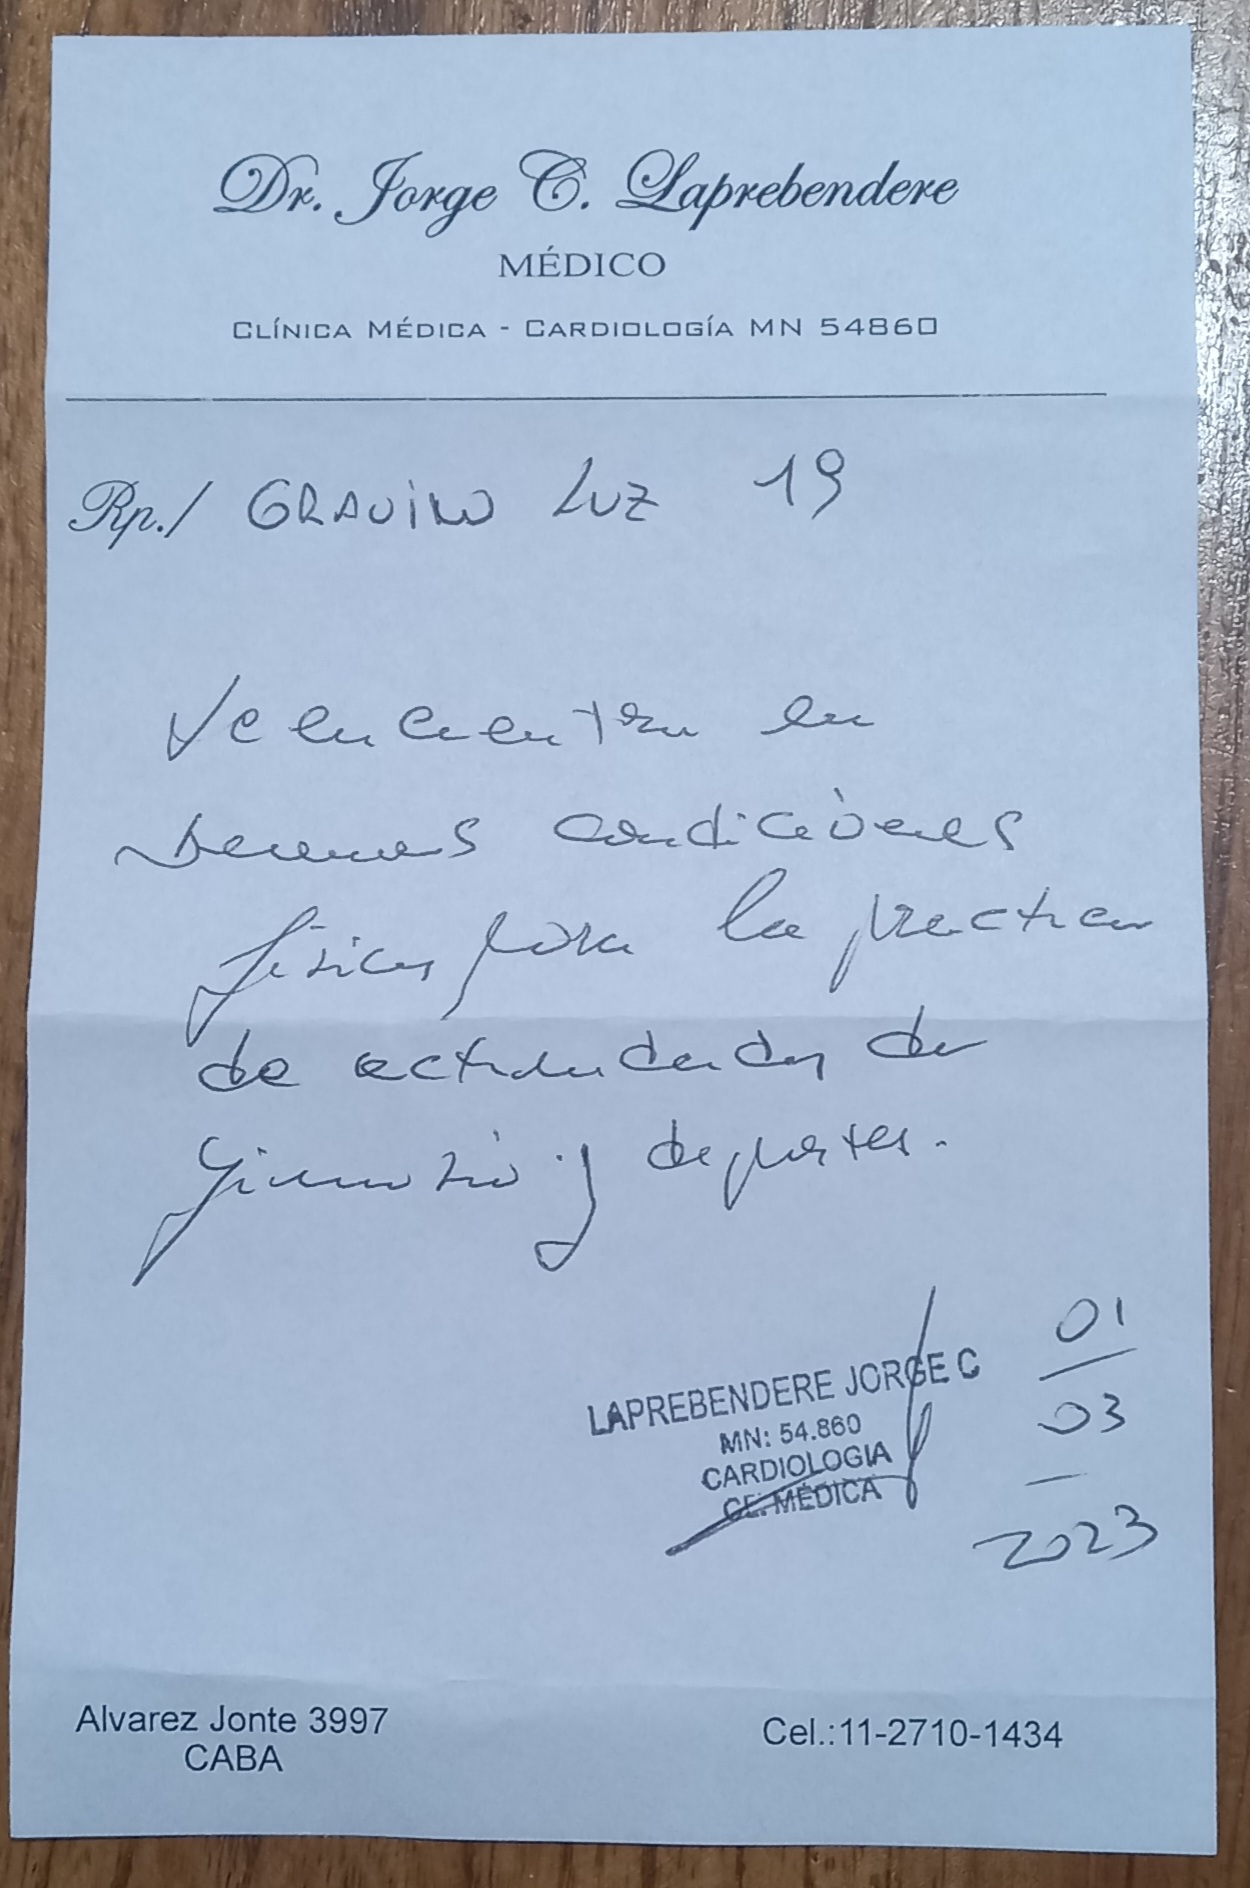 Dr. Jorge C. Laprebendere
MÉDICO
CLÍNICA MÉDICA - CARDIOLOGÍA MN 54860
Rp./ GRAVINO LUZ 19
Se encuentra en
buenas condiciones
físicas para la practica
de actividades de
gimnasio y deportes.
LAPREBENDERE JORGE C
MN: 54.860
CARDIOLOGIA
CL. MÉDICA
01
03
2023
Alvarez Jonte 3997
CABA
Cel.:11-2710-1434